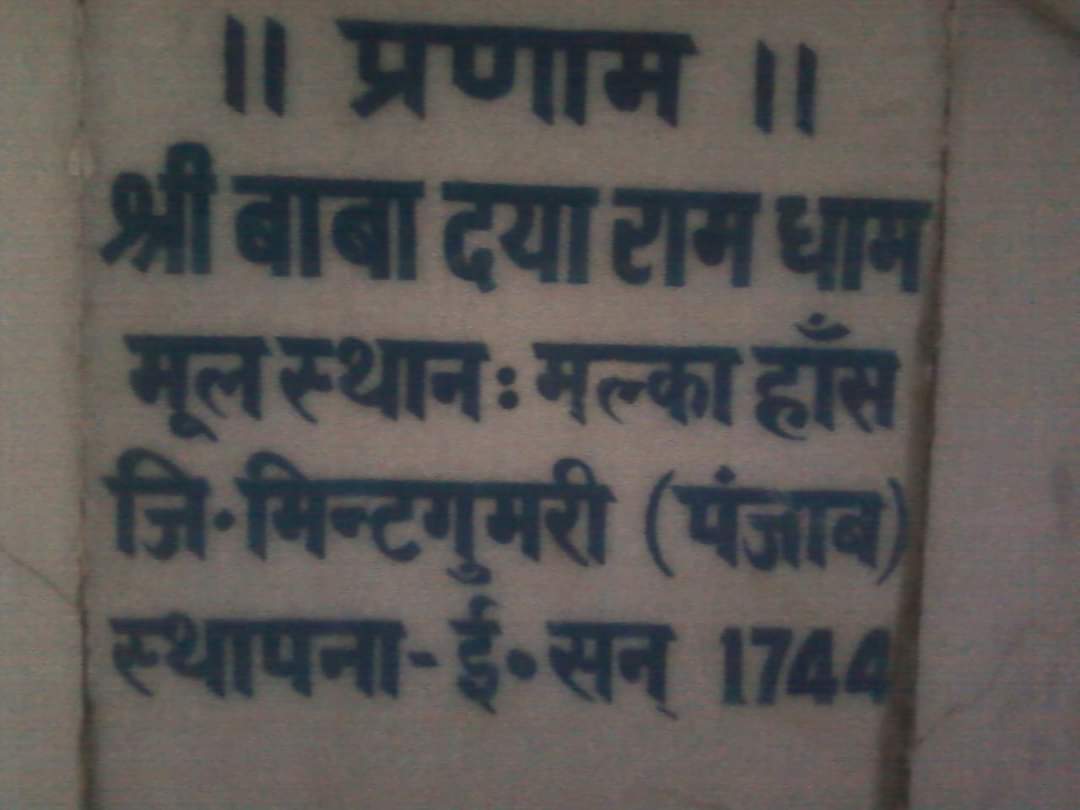 ।। प्रणाम ।।
श्री बाबा दया राम धाम
मूल स्थान : मल्का हाँस
जि॰ मिन्टगुमरी (पंजाब)
स्थापना - ई॰ सन् 1744